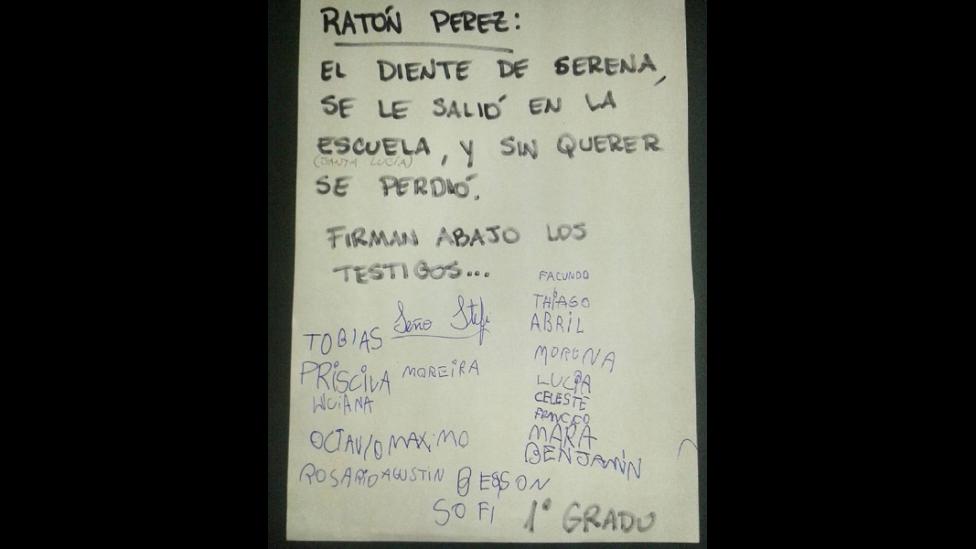 RATÓN PEREZ:
EL DIENTE DE SERENA,
SE LE SALIÓ EN LA
ESCUELA, Y SIN QUERER
(SANTA LUCÍA)
SE PERDIÓ.
FIRMAN ABAJO LOS
TESTIGOS...
FACUNDO
THIAGO
Seño Stefi
ABRIL
TOBIAS
MORENA
PRISCILA MOREIRA
LUCIA
LUCIANA
CELESTE
MARA
OCTAVIO MAXIMO
BENJAMÍN
ROSARIO AGUSTIN
SOFI
1° GRADO